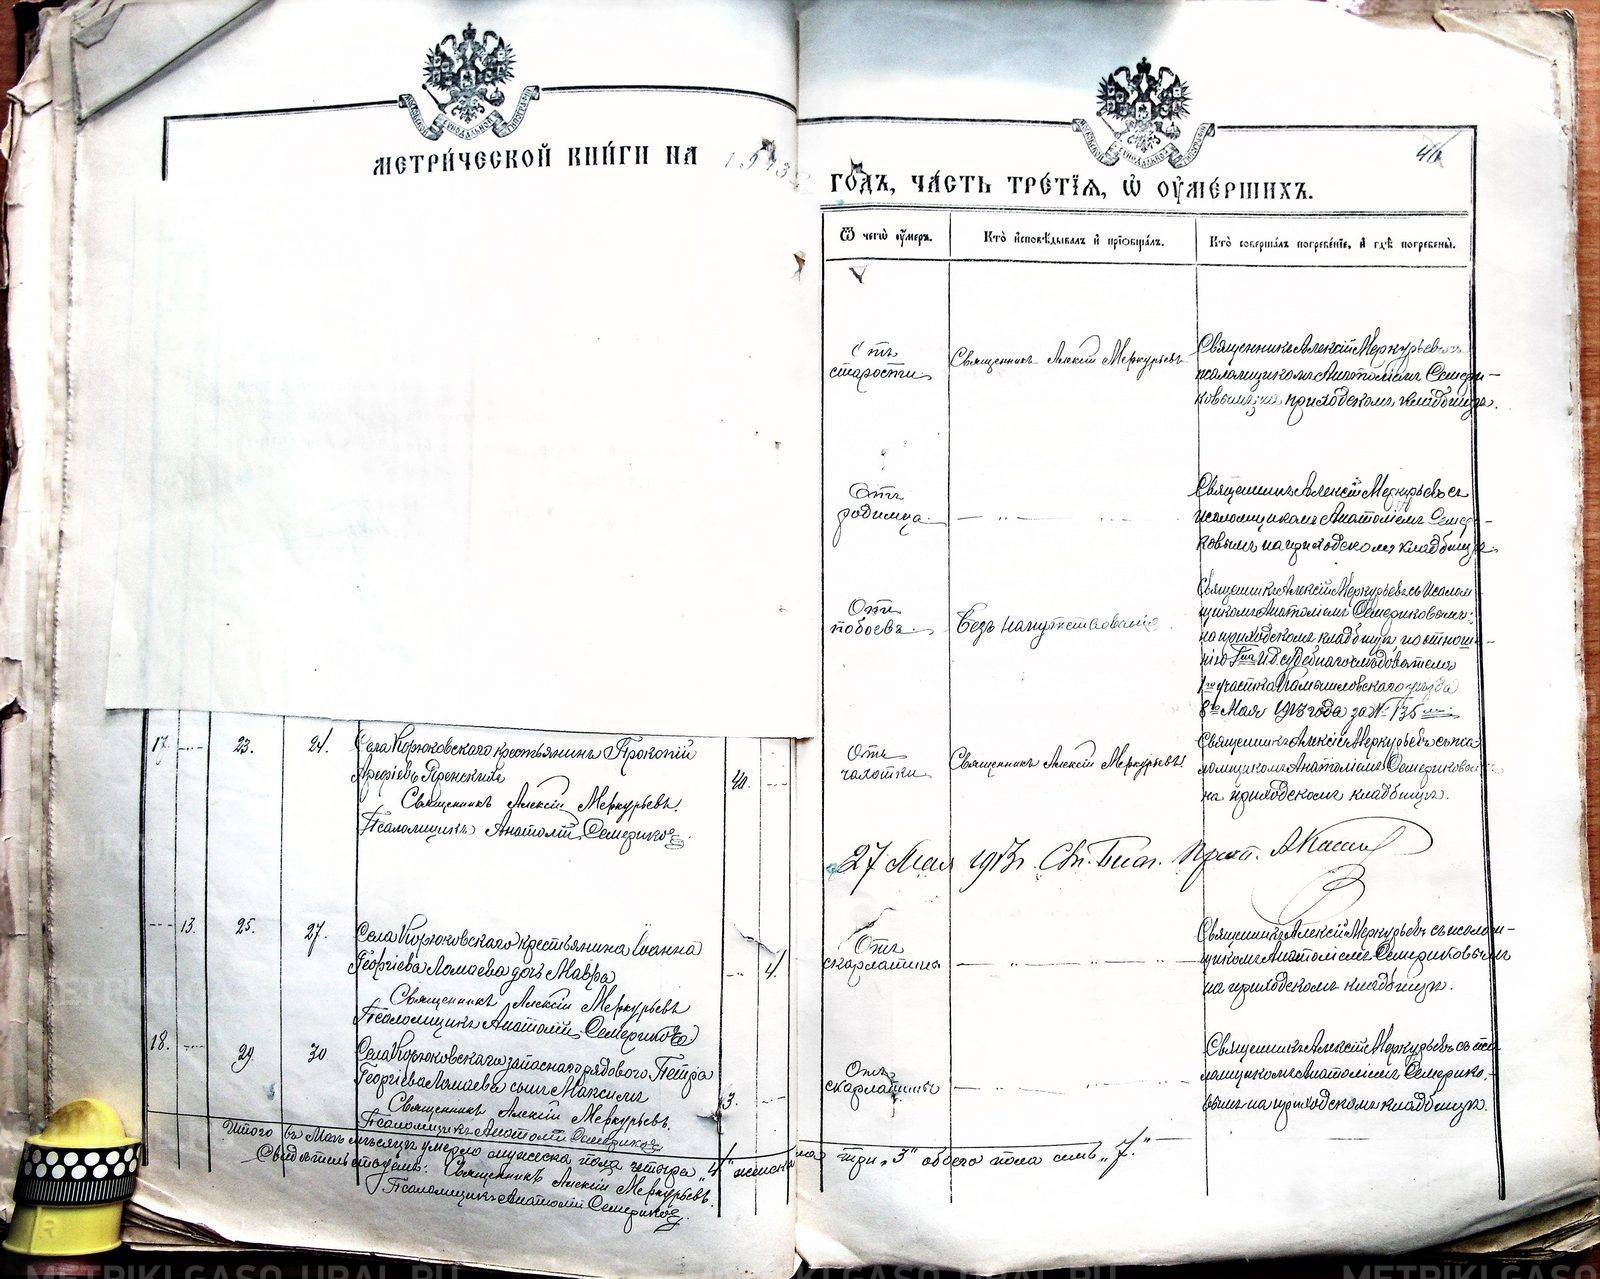 МЕТРИ́ЧЕСКОЙ КНИ́ГИ НА 1913
ГО́ДЪ, ЧА́СТЬ ТРЕ́ТІѦ, Ѡ҆ ОУ҆МЕ́РШИХЪ.
Ѿ чегѡ̀ оу҆́меръ.
Кто̀ и҆сповѣ́дывалъ и҆ прїѡбща́лъ.
Кто̀ соверша́лъ погребе́нїе, и҆ гдѣ̀ погребены̀.
Отъ
старости
Священникъ Алексій Меркурьевъ
Священникъ Алексій Меркурьевъ съ
псаломщикомъ Анатоліемъ Семери-
ковымъ на приходскомъ кладбищѣ.
Отъ
родимца
— „ — „ —
Священникъ Алексій Меркурьевъ съ
псаломщикомъ Анатоліемъ Семери-
ковымъ на приходскомъ кладбищѣ.
Отъ
побоевъ
Безъ напутствованія
Священникъ Алексій Меркурьевъ съ псалом
щикомъ Анатоліемъ Семериковымъ
на приходскомъ кладбищѣ, по отноше-
нію И.д. судебнаго слѣдователя
1го участка Камышловскаго уѣзда
8го Мая 1913 года за № 135
17. 23. 24. Села Корюковскаго крестьянинъ Прокопій
40.
Священникъ Алексій Меркурьевъ.
Псаломщикъ Анатолій Семериковъ.
Отъ
чахотки
Священникъ Алексій Меркурьевъ
Священникъ Алексій Меркурьевъ съ пса
ломщикомъ Анатоліемъ Семериковымъ
на приходскомъ кладбищѣ.
27 Мая 1913 г. Св. Благ. Прот.
13. 25. 27. Села Корюковскаго крестьянина Іоанна
Георгіева Ломаева дочь Мавра
4.
Священникъ Алексій Меркурьевъ
Псаломщикъ Анатолій Семериковъ
Отъ
скарлатины
— „ — „ —
Священникъ Алексій Меркурьевъ съ псалом-
щикомъ Анатоліемъ Семериковымъ
на приходскомъ кладбищѣ.
18. 29. 30. Села Корюковскаго запаснаго рядового Петра
Георгіева Ломаева сынъ Максимъ
3.
Священникъ Алексій Меркурьевъ.
Псаломщикъ Анатолій Семериковъ
Отъ
скарлатины
— „ — „ —
Священникъ Алексій Меркурьевъ съ пса-
ломщикомъ Анатоліемъ Семерико-
вымъ на приходскомъ кладбищѣ.
Итого въ Маѣ мѣсяцѣ умерло мужеска пола четыре „4“ женска
пола три „3“ обоего пола семь „7.“
Свидѣтельствуемъ: Священникъ Алексій Меркурьевъ.
Псаломщикъ Анатолій Семериковъ.
METRIKI.GASO-URAL.RU